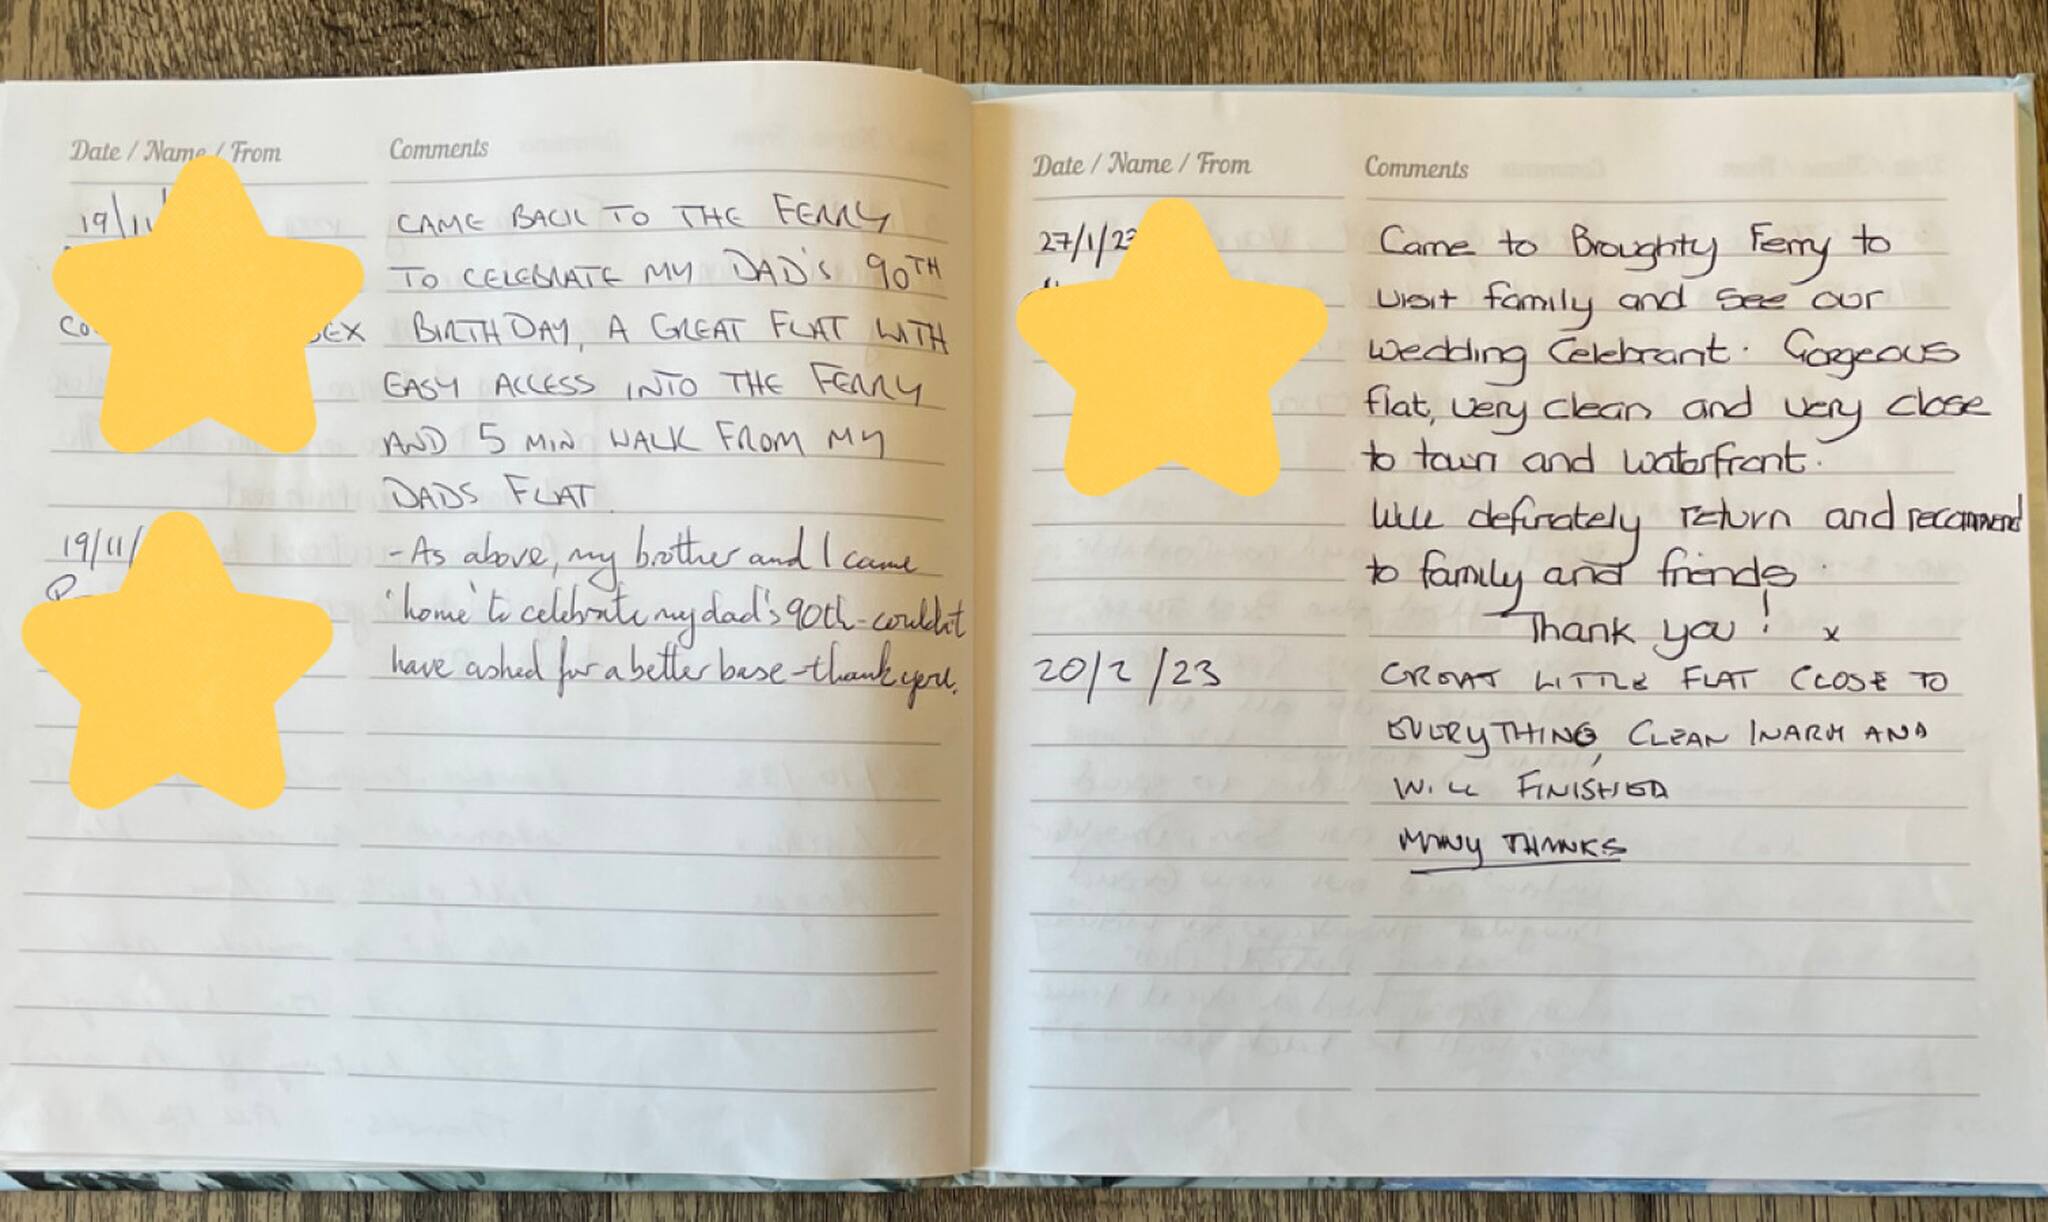 Date / Name / From
Comments
19/11/
CAME BACK TO THE FERRY
TO CELEBRATE MY DAD'S 90TH
BIRTHDAY, A GREAT FLAT WITH
EASY ACCESS INTO THE FERRY
AND 5 MIN WALK FROM MY
DADS FLAT.
19/11/
- As above, my brother and I came
'home' to celebrate my dad's 90th - couldn't
have asked for a better base - thank you.
Date / Name / From
Comments
27/1/23
Came to Broughty Ferry to
visit family and see our
wedding Celebrant. Gorgeous
flat, very clean and very close
to town and waterfront.
Will definately return and recommend
to family and friends.
Thank you! x
20/2/23
GREAT LITTLE FLAT CLOSE TO
EVERYTHING, CLEAN WARM AND
WELL FINISHED
MANY THANKS